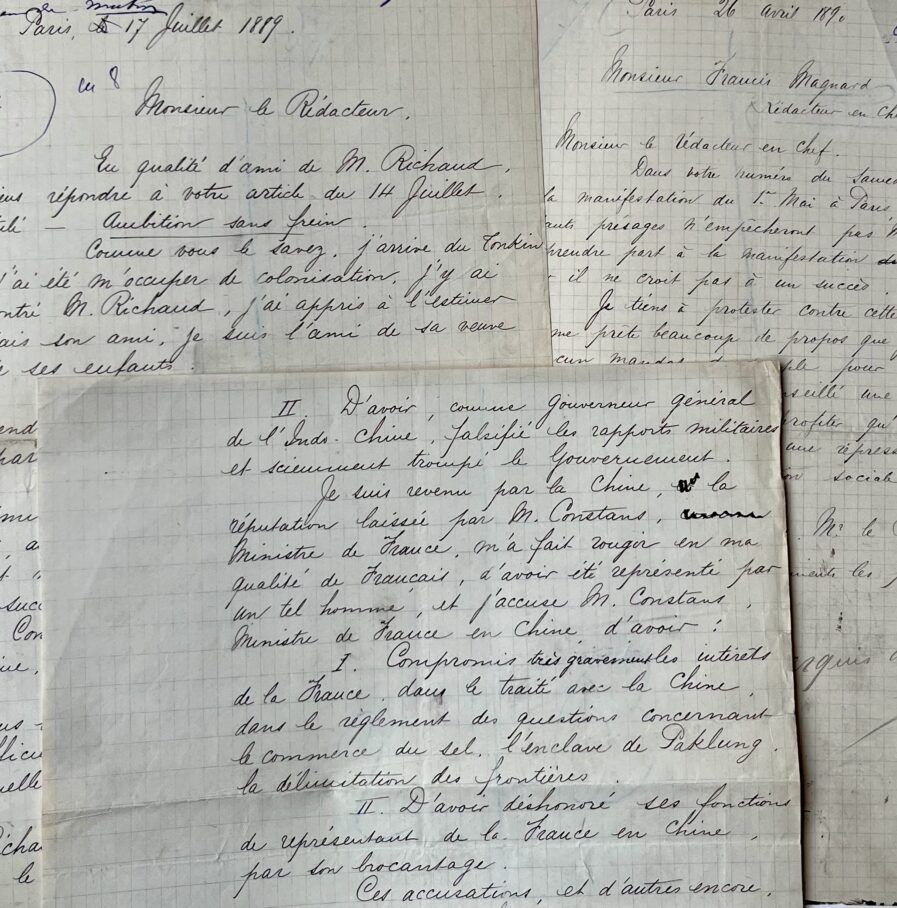 Paris, 17 Juillet 1889.
Monsieur le Rédacteur,
En qualité d'ami de M. Richaud,
répondre à votre article du 14 Juillet.
— Ambition sans frein.
Comme vous le savez, j'arrive du Tonkin
j'ai été m'occuper de colonisation, j'y ai
M. Richaud, j'ai appris à l'estimer
son ami, je suis l'ami de sa veuve
ses enfants.
II. D'avoir, comme Gouverneur général
de l'Indo-Chine, falsifié les rapports militaires
et sciemment trompé le Gouvernement.
Je suis revenu par la Chine, la
réputation laissée par M. Constans,
Ministre de France, m'a fait rougir en ma
qualité de Français, d'avoir été représenté par
un tel homme, et j'accuse M. Constans,
Ministre de France en Chine, d'avoir :
I. Compromis très gravement les intérêts
de la France, dans le traité avec la Chine,
dans le règlement des questions concernant
le commerce du sel, l'enclave de Paklung,
la délimitation des frontières.
II. D'avoir déshonoré ses fonctions
de représentant de la France en Chine,
par son brocantage.
Ces accusations, et d'autres encore,
Paris 26 Avril 1890
Monsieur Francis Magnard
Rédacteur en
Monsieur le rédacteur en chef.
Dans votre numéro du
la manifestation du 1er Mai à Paris
présages n'empêcheront pas
prendre part à la manifestation
il ne croit pas à un succès.
Je tiens à protester contre cette
me prête beaucoup de propos que
mandat
pour
une
qu'
une
Mr. le
les